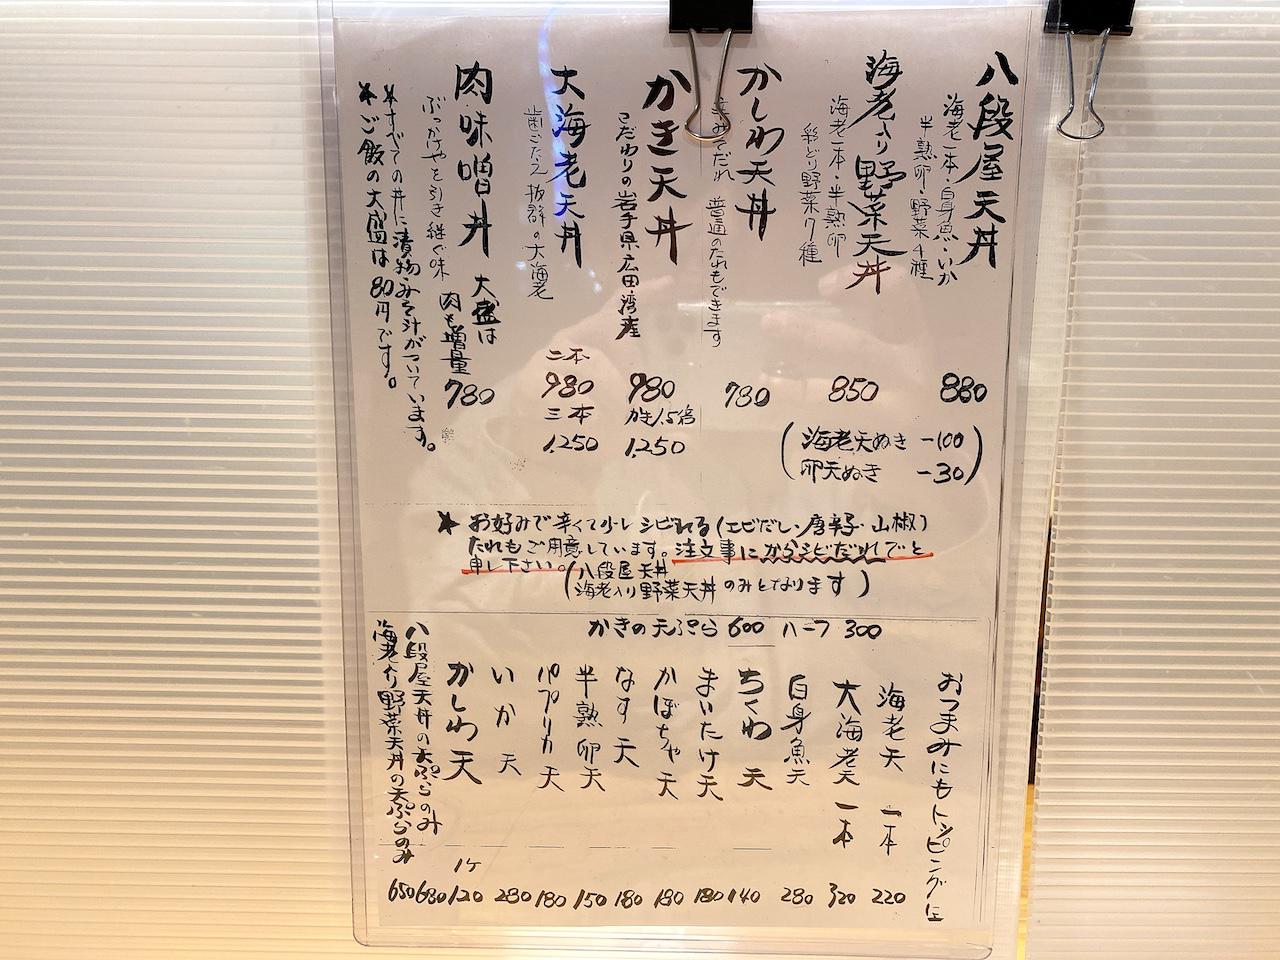 八段屋天丼
海老一本・白身魚・いか
半熟卵・野菜4種
880
海老入り野菜天丼
海老一本・半熟卵
彩どり野菜7種
850
(海老天ぬき -100
卵天ぬき -30)
かしわ天丼
みそだれ 普通のたれもできます
780
かき天丼
こだわりの岩手県広田湾産
980
かき1.5倍
1,250
大海老天丼
歯ごたえ抜群の大海老
二本
980
三本
1,250
肉味噌丼
ぶっかけやを引き継ぐ味
大盛は
肉も増量
780
*すべての丼に漬物・みそ汁がついています。
*ご飯の大盛は80円です。
★お好みで辛くて少しシビれる(エビだし・唐辛子・山椒)
たれもご用意しています。注文事にからシビだれでと
申し下さい。(八段屋天丼
海老入り野菜天丼のみとなります)
かきの天ぷら 600 ハーフ 300
おつまみにもトッピングに
海老天 一本 220
大海老天 一本 320
白身魚天 280
ちくわ天 140
まいたけ天 180
かぼちゃ天 180
なす天 180
半熟卵天 150
パプリカ天 180
いか天 280
かしわ天 1ヶ 120
八段屋天丼の天ぷらのみ 680
海老入り野菜天丼の天ぷらのみ 650